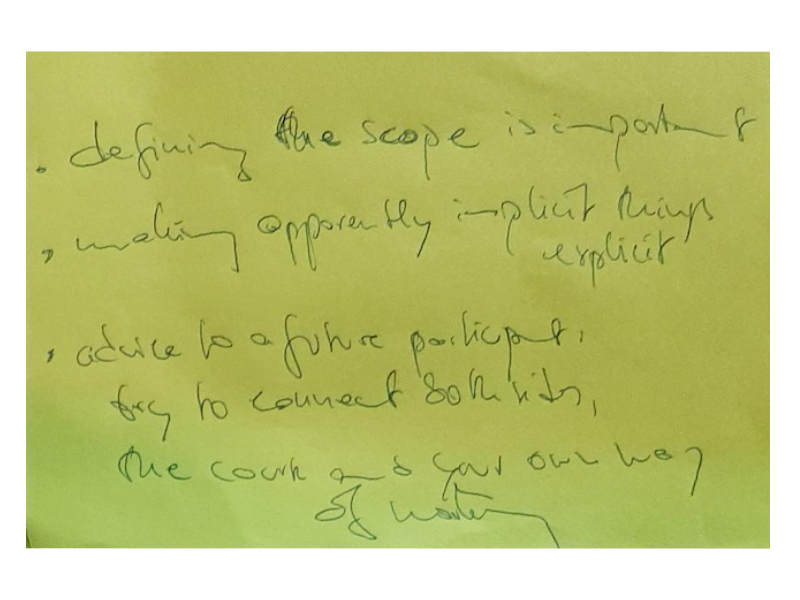 . defining the scope is important
, making apparently implicit things
explicit
, advice to a future participant,
try to connect both sides,
the course and your own way
of working